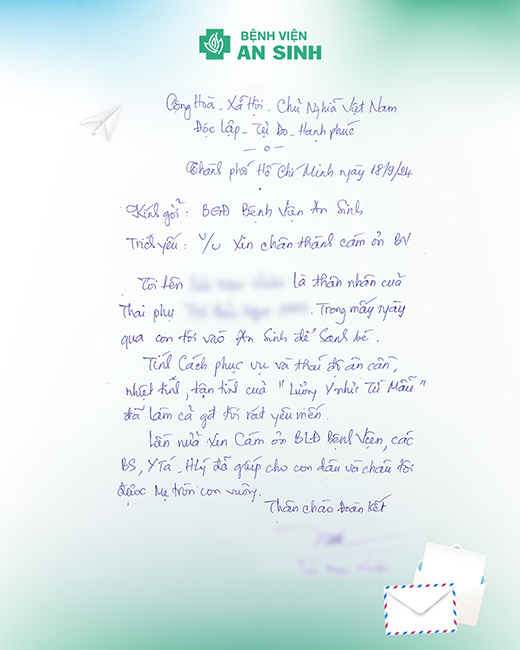 BỆNH VIỆN
AN SINH
Cộng Hoà - Xã Hội - Chủ Nghĩa Việt Nam
Độc lập - Tự Do - Hạnh phúc
Thành phố Hồ Chí Minh ngày 18/9/24
Kính gởi: BGĐ Bệnh Viện An Sinh
Trích yếu: V/v Xin chân thành cám ơn BV
Tôi tên là thân nhân của
Thai phụ . Trong mấy ngày
qua con tôi vào An Sinh để Sanh bé.
Tính Cách phục vụ và thái độ ân cần,
nhiệt tình, tận tình của "Lương Y như Từ Mẫu"
đã làm cả gđ tôi rất yêu mến.
Lần nữa xin Cám ơn BLĐ Bệnh Viện, các
BS, Y Tá - Hlý đã giúp cho con dâu và cháu tôi
được Mẹ tròn con vuông.
Thân chào Đoàn Kết